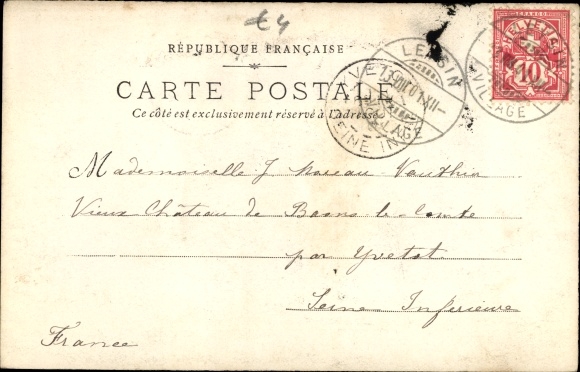 €4
RÉPUBLIQUE FRANÇAISE
CARTE POSTALE
Ce côté est exclusivement réservé à l'adresse
HELVETIA
FRANCO
10
LEYSIN
VILLAGE
VILLAGE
SEINE INF
Mademoiselle J Moreau-Vauthier
Vieux Château de Bosne le-Comte
par Yvetot
Seine Inférieure
France